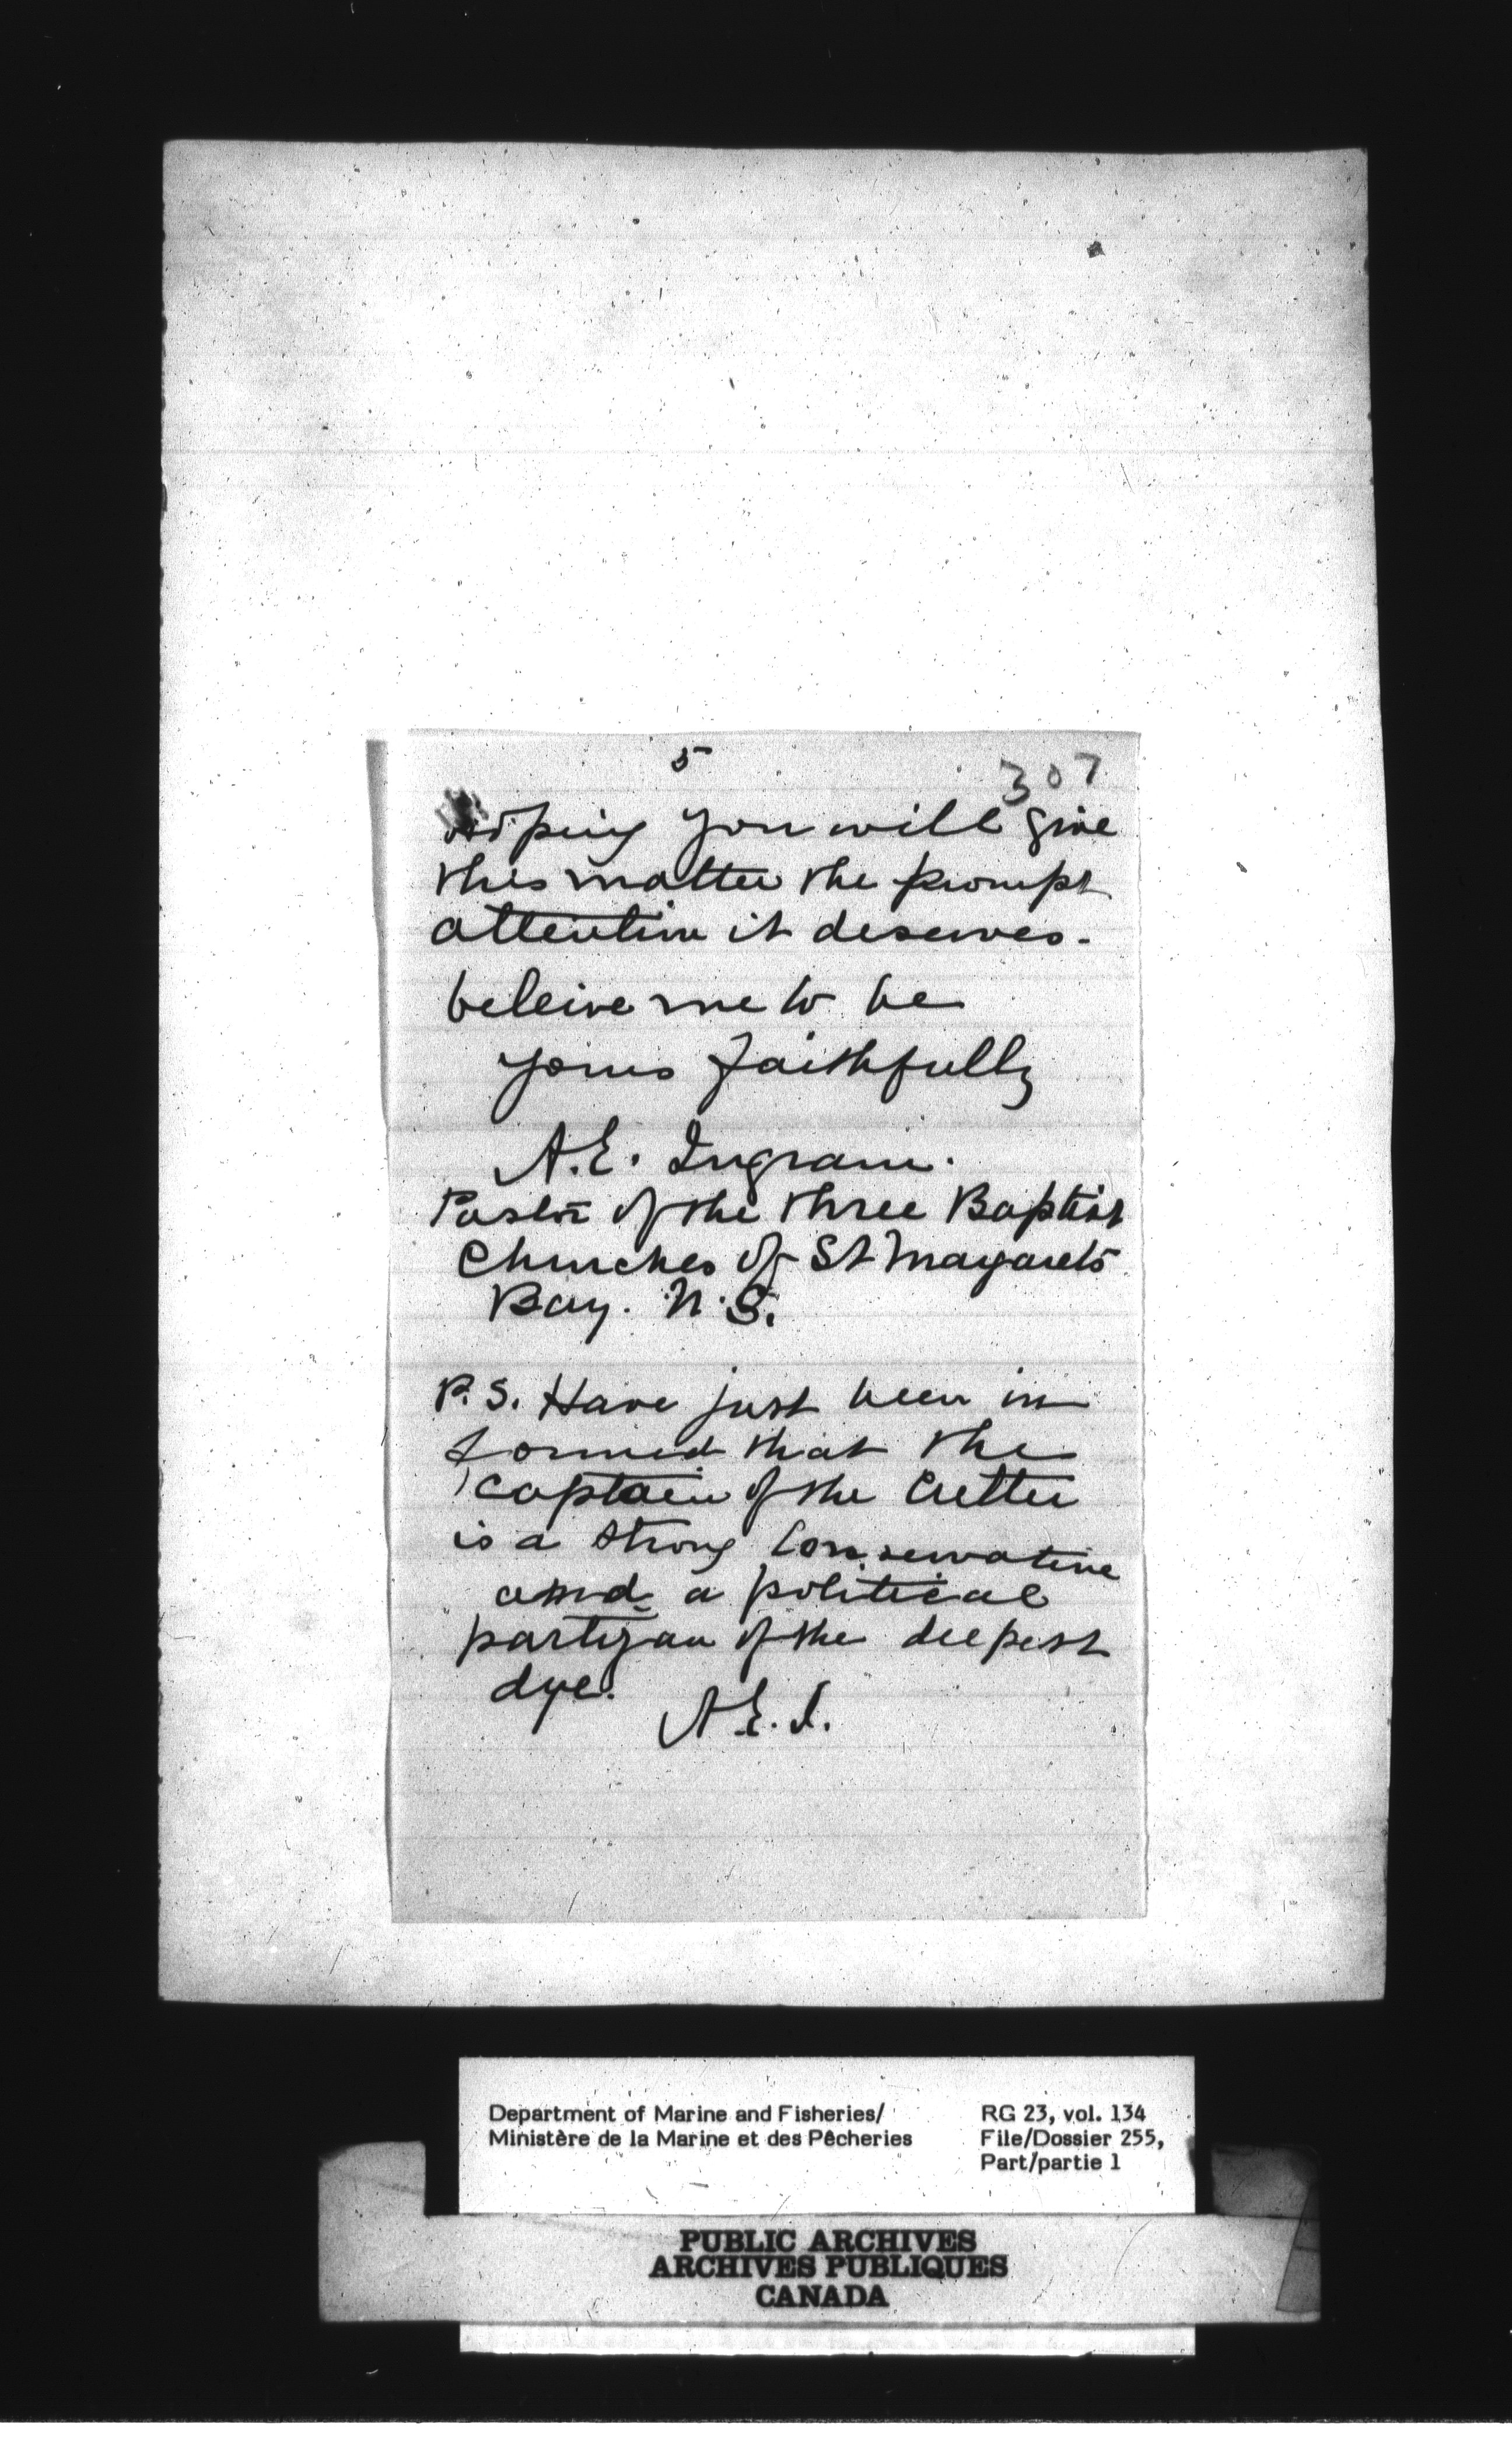 5
307
Hoping you will give
this matter the prompt
attention it deserves.
beleive me to be
yours faithfully
A.E. Ingram.
Pastor of the three Baptist
Churches of St Margarets
Bay. N.S.
P.S. Have just been in
formed that the
captain of the Cutter
is a strong Conservative
and a political
partizan of the deepest
dye.
A.E.I.
Department of Marine and Fisheries/
Ministère de la Marine et des Pêcheries
RG 23, vol. 134
File/Dossier 255,
Part/partie 1
PUBLIC ARCHIVES
ARCHIVES PUBLIQUES
CANADA